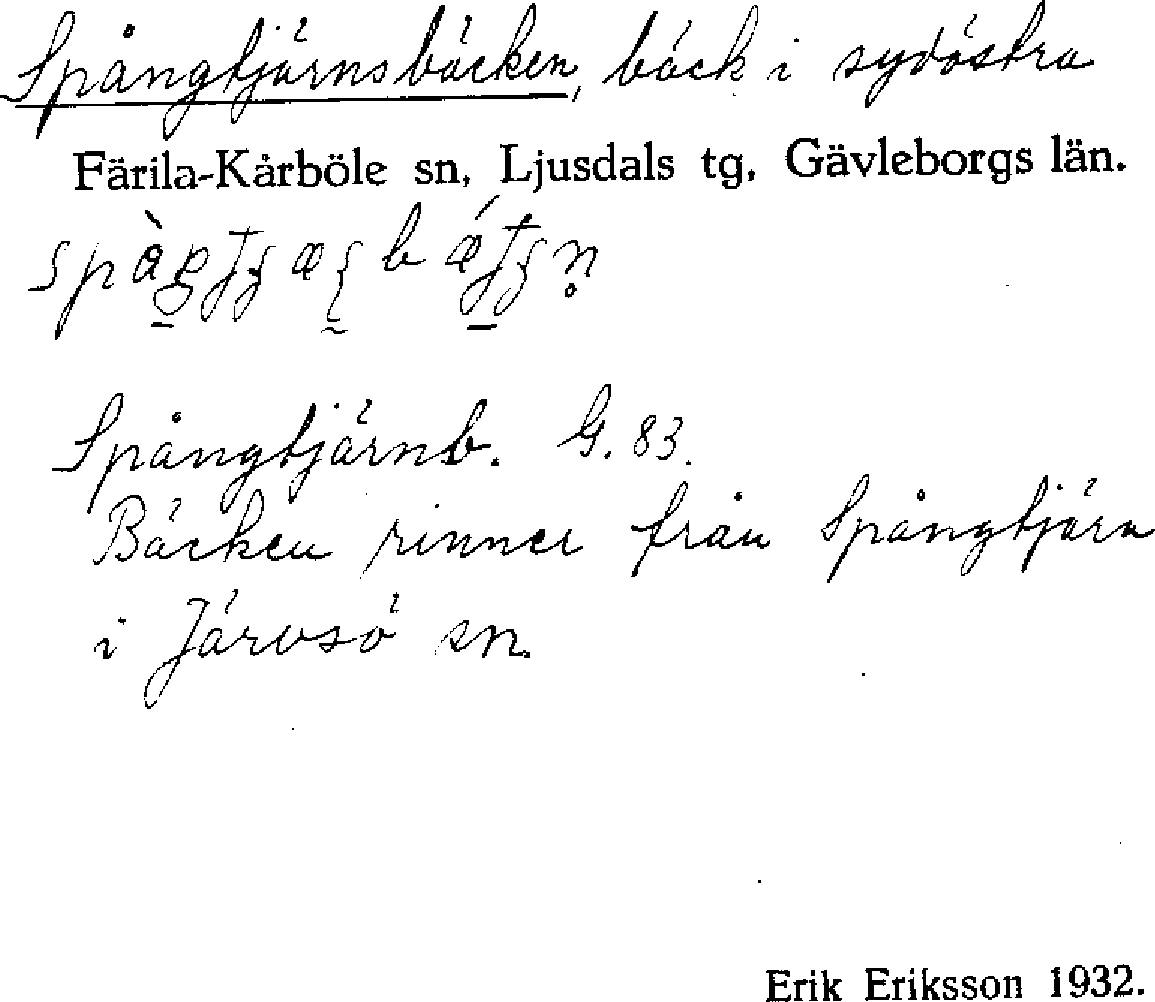 Spångtjärnsbäcken, bäck i sydöstra
Färila-Kårböle sn, Ljusdals tg, Gävleborgs län.
Spångtjärnb. G. 83.
Bäcken rinner från Spångtjärn
i Järvsö sn.
Erik Eriksson 1932.